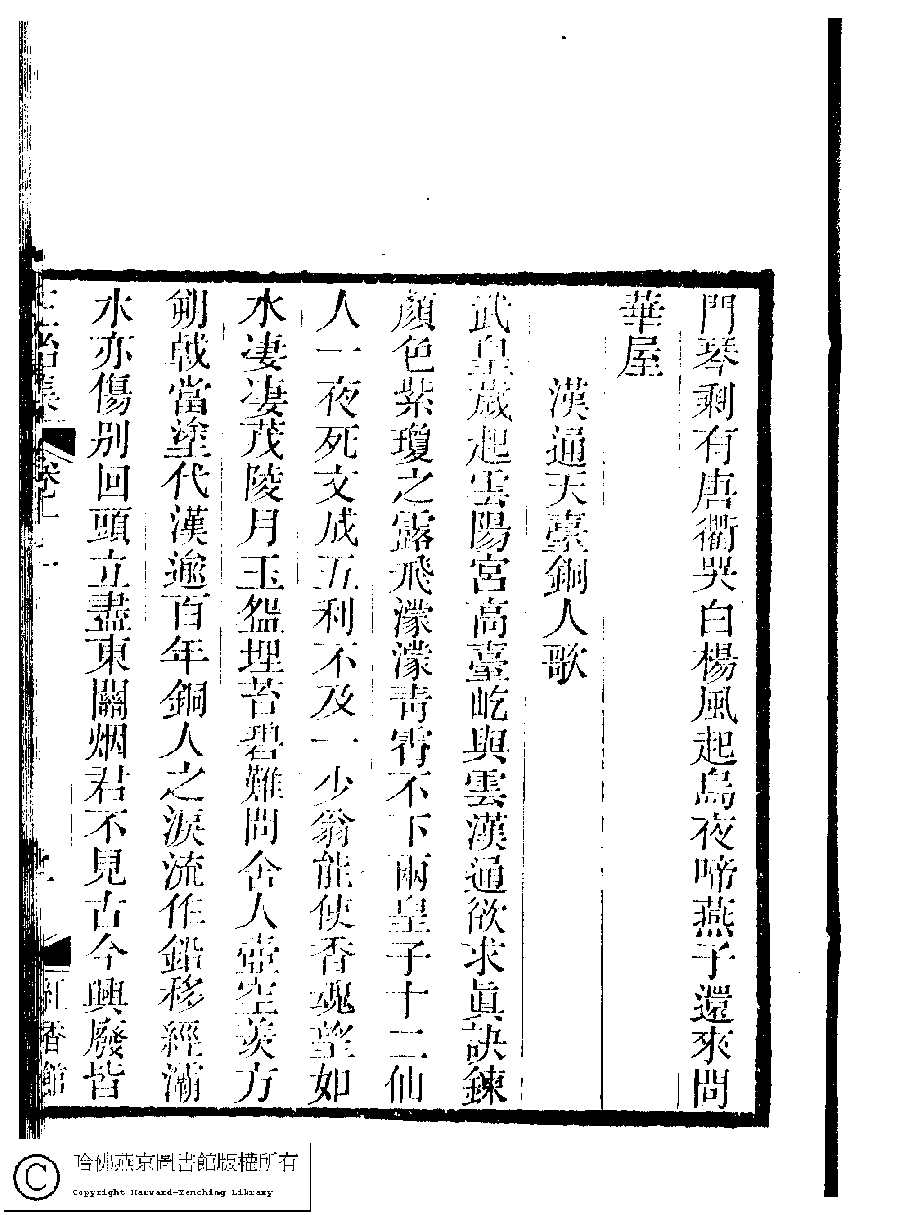 門琴剩有唐衢哭白楊風起烏夜啼燕子還來問
華屋
漢通天臺銅人歌
武皇歲起雲陽宮高臺屹與雲漢通欲求眞訣鍊
顏色紫瓊之露飛濛濛靑霄不下兩皇子十二仙
人一夜死文成五利不及一少翁能使香魂望如
水凄凄茂陵月玉盌埋苔碧難問舍人壺空羨方
朔戟當塗代漢逾百年銅人之淚流作鉛移經灞
水亦傷别回頭立盡東關烟君不見古今興廢皆
集 卷十
紅香館
哈佛燕京圖書館版權所有
Copyright Harvard-Yenching Library